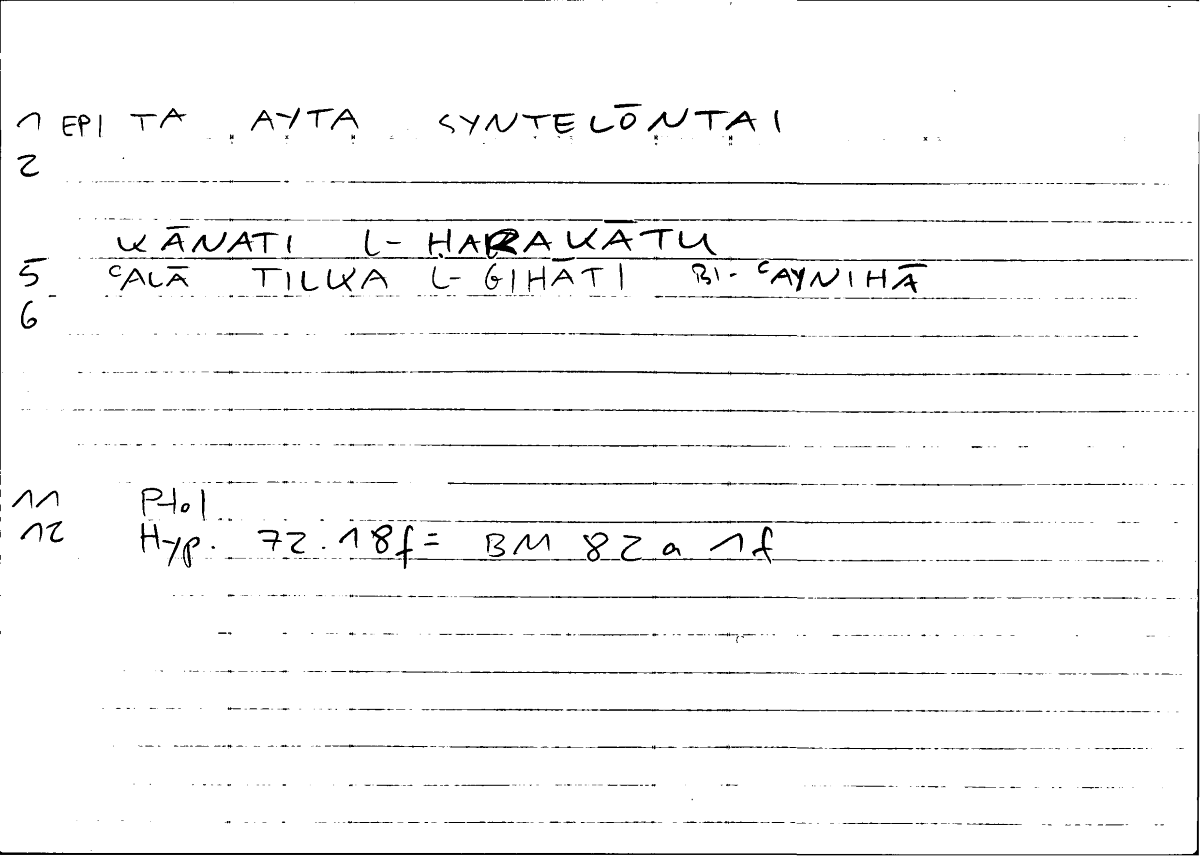 1 EPI TA AYTA SYNTELŌNTAI
2
KĀNATI L- ḤARAKĀTU
5 ʿALĀ TILKA L- GIHĀTI BI- ʿAYNIHĀ
6
11 Ptol
12 Hyp. 72.18f = BM 82a 1f